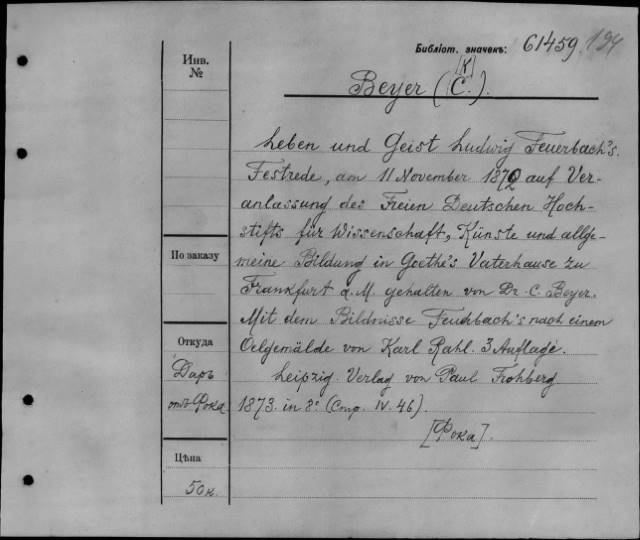 Библіот. значекъ: 61459. 194
Инв. №
[К]
Beyer (C.).
Leben und Geist Ludwig Feuerbach's.
Festrede, am 11 November 1872 auf Ver-
anlassung des Freien Deutschen Hoch-
stifts für Wissenschaft, Künste und allge-
meine Bildung in Goethe's Vaterhause zu
Frankfurt a. M. gehalten von Dr. C. Beyer.
Mit dem Bildnisse Feuerbach's nach einem
Oelgemälde von Karl Rahl. 3 Auflage.
Leipzig. Verlag von Paul Frohberg
1873. in 8° (Стр. IV. 46).
[Фока].
По заказу
Откуда
Даръ
отъ Фока
Цѣна
50 к.